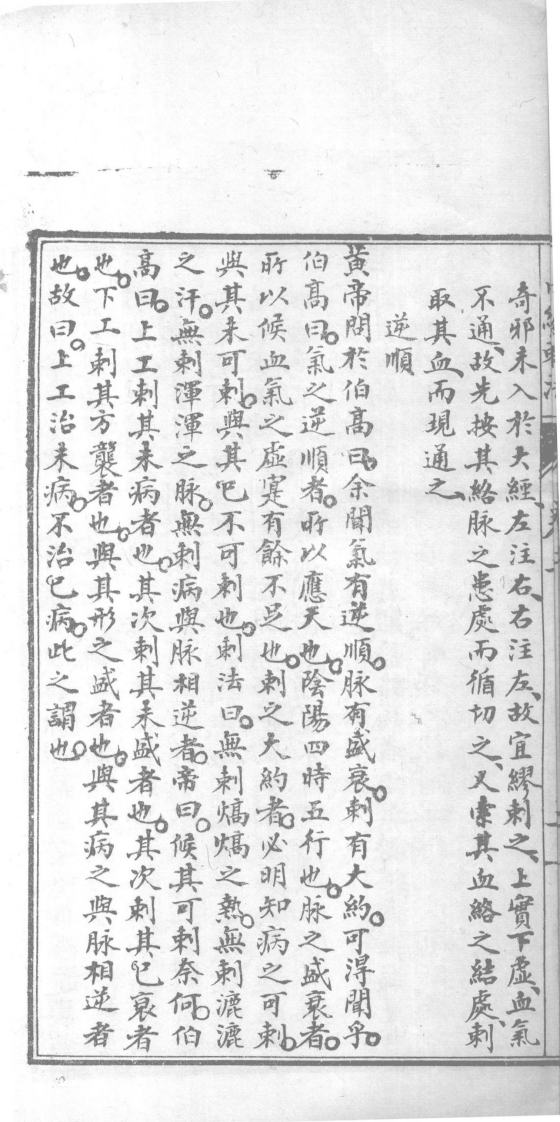 奇邪未入於大經、左注右、右注左、故宜繆刺之、上實下虛、血氣
不通、故先按其絡脉之患處而循切之、又索其血絡之結處、刺
取其血、而現通之、
逆順
黃帝問於伯高曰。余聞氣有逆順。脉有盛衰。刺有大約。可淂聞乎。
伯高曰。氣之逆順者。所以應天也。陰陽四時五行也。脉之盛衰者。
所以候血氣之虛寔有餘不足也。刺之大約者。必明知病之可刺。
與其未可刺。與其已不可刺也。刺法曰。無刺熇熇之熱。無刺漉漉
之汗。無刺渾渾之脉。無刺病與脉相逆者。帝曰。候其可刺奈何。伯
高曰。上工刺其未病者也。其次刺其未盛者也。其次刺其已衰者
也。下工刺其方襲者也。與其形之盛者也。與其病之與脉相逆者
也。故曰。上工治未病。不治已病。此之謂也。